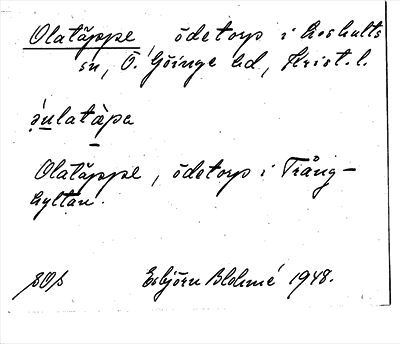 Olatäppe, ödetorp i Loshults
sn, Ö. Göinge hd, Krist. l.
Olatäppe, ödetorp i Trång-
hyltan.
Esbjörn Blohmé 1948.